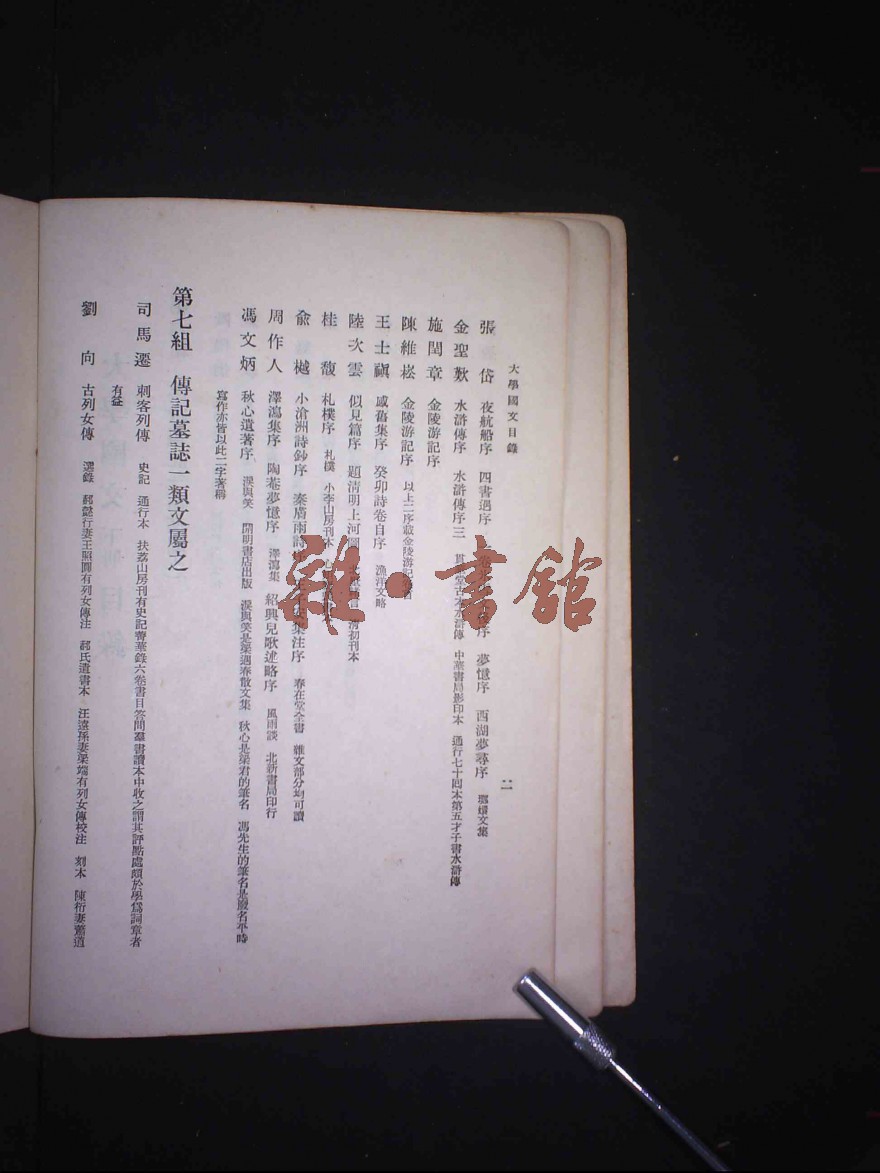 大學國文目錄
二
張岱 夜航船序 四書遇序 序 夢憶序 西湖夢尋序 瑯嬛文集
金聖歎 水滸傳序 水滸傳序三 貫華堂古本水滸傳 中華書局影印本 通行七十回本第五才子書水滸傳
施閏章 金陵游記序
陳維崧 金陵游記序 以上二序載金陵游記
王士禛 感舊集序 癸卯詩卷自序 漁洋文略
陸次雲 似見篇序 題清明上河圖 清初刊本
桂馥 札樸序 札樸 小李山房刊本
俞樾 小滄洲詩鈔序 秦膚雨詩 集注序 春在堂全書 雜文部分均可讀
周作人 澤瀉集序 陶菴夢憶序 澤瀉集 紹興兒歌述略序 風雨談 北新書局印行
馮文炳 秋心遺著序 淚與笑 開明書店出版 淚與笑是梁遇春散文集 秋心是梁君的筆名 馮先生的筆名是廢名平時
寫作亦皆以此二字著稱
第七組 傳記墓誌一類文屬之
司馬遷 刺客列傳 史記 通行本 扶荔山房刊有史記菁華錄六卷書目答問羣書讀本中收之謂其評點處頗於學爲詞章者
有益
劉向 古列女傳 選錄 郝懿行妻王照圓有列女傳注 郝氏遺書本 汪遠孫妻梁端有列女傳校注 刻本 陳衍妻蕭道
雜·書館